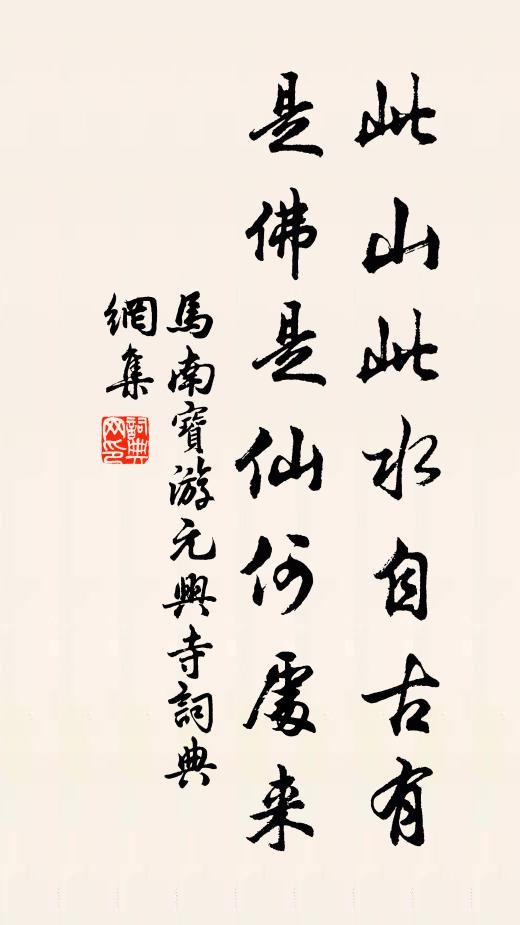 此山此水自古有
是佛是仙何處来
馬南寶游元興寺詞典
網集
詞典
网印